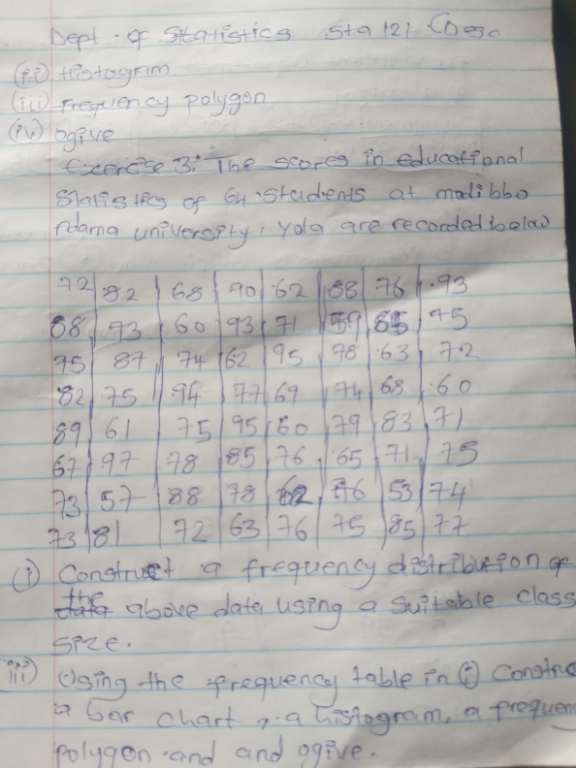 Dept. of Statistics Sta 121
(ii) Histogram
(iii) Frequency polygon
(iv) ogive
Exercise 3: The scores in educational
Statistics of 64 Students at modibbo
Adama university, Yola are recorded below
72 82 68 90 62 88 76 93
68 73 60 93 71 59 85 75
75 87 74 62 95 78 63 72
82 75 94 77 69 74 68 60
89 61 75 95 60 79 83 71
67 97 78 85 76 65 71 75
73 57 88 78 62 76 53 74
73 81 72 63 76 75 85 77
(i) Construct a frequency distribution of
the
data above data using a suitable class
size.
iii) Using the frequency table in (i) Constru
a bar chart, a histogram, a frequen
polygon and and ogive.